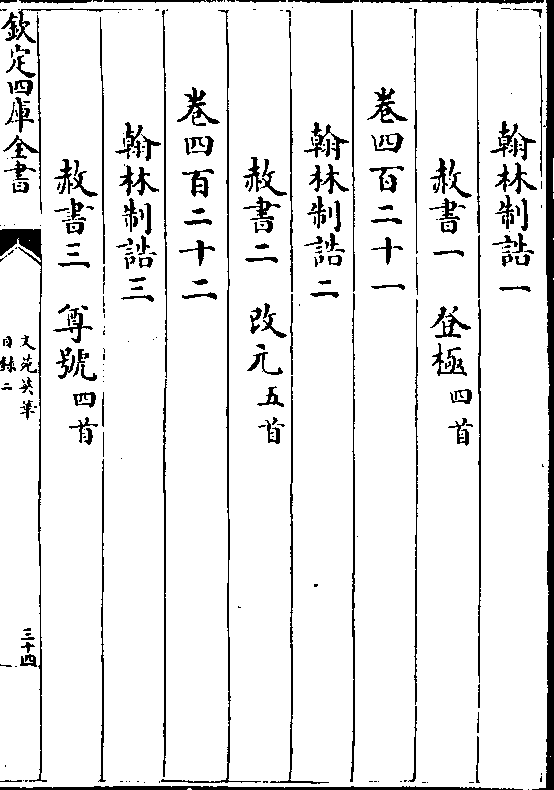 翰林制誥一
赦書一　登極四首
卷四百二十一
翰林制誥二
赦書二　改元五首
卷四百二十二
翰林制誥三
赦書三　尊號四首
欽定四庫全書
文苑英華
目錄二
三十四